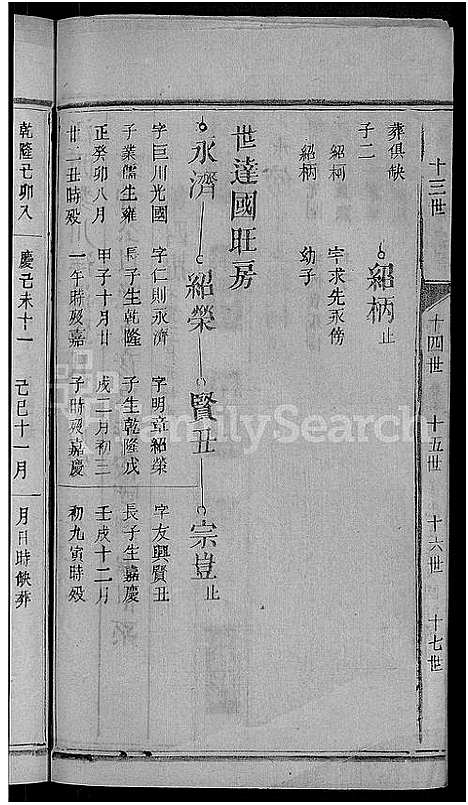 十三世
十四世
十五世
十六世
十七世
葬俱缺
子二
紹柯
紹柄
紹柄
止
字求先永傍
幼子
世達國旺房
永濟
紹榮
賢丑
宗豈
止
字巨川光國
子業儒生雍
正癸卯八月
廿二丑時殁
字仁則永濟
長子生乾隆
甲子十月廿
一午時殁嘉
字明章紹榮
子生乾隆戊
戌二月初三
子時殁嘉慶
字友興賢丑
長子生嘉慶
壬戌十二月
初九寅時殁
乾隆己卯八
慶己未十一
己巳十一月
月日時缺葬
FamilySearch